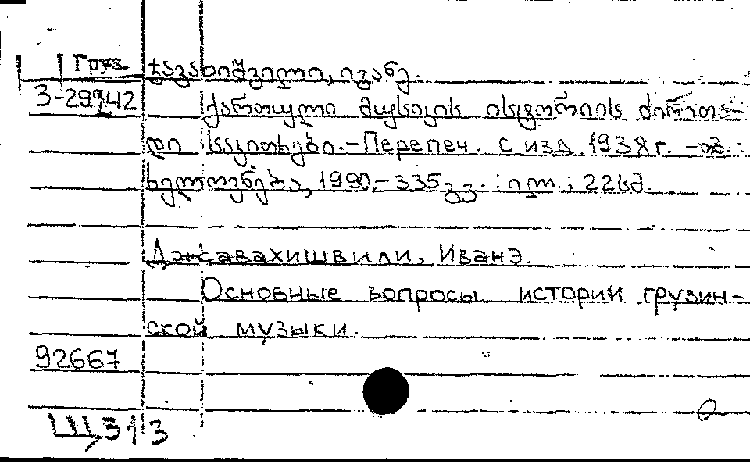 Груз. ჯავახიშვილი, ივანე.
3-29942 ქართული მუსიკის ისტორიის ძირითა-
დი საკითხები. - Перепеч. с изд. 1938 г. - თბ.:
ხელოვნება, 1990. - 335 გვ.: ილ.; 22 სმ.
Джавахишвили, Иванэ.
Основные вопросы истории грузин-
ской музыки.
92667
Щ313